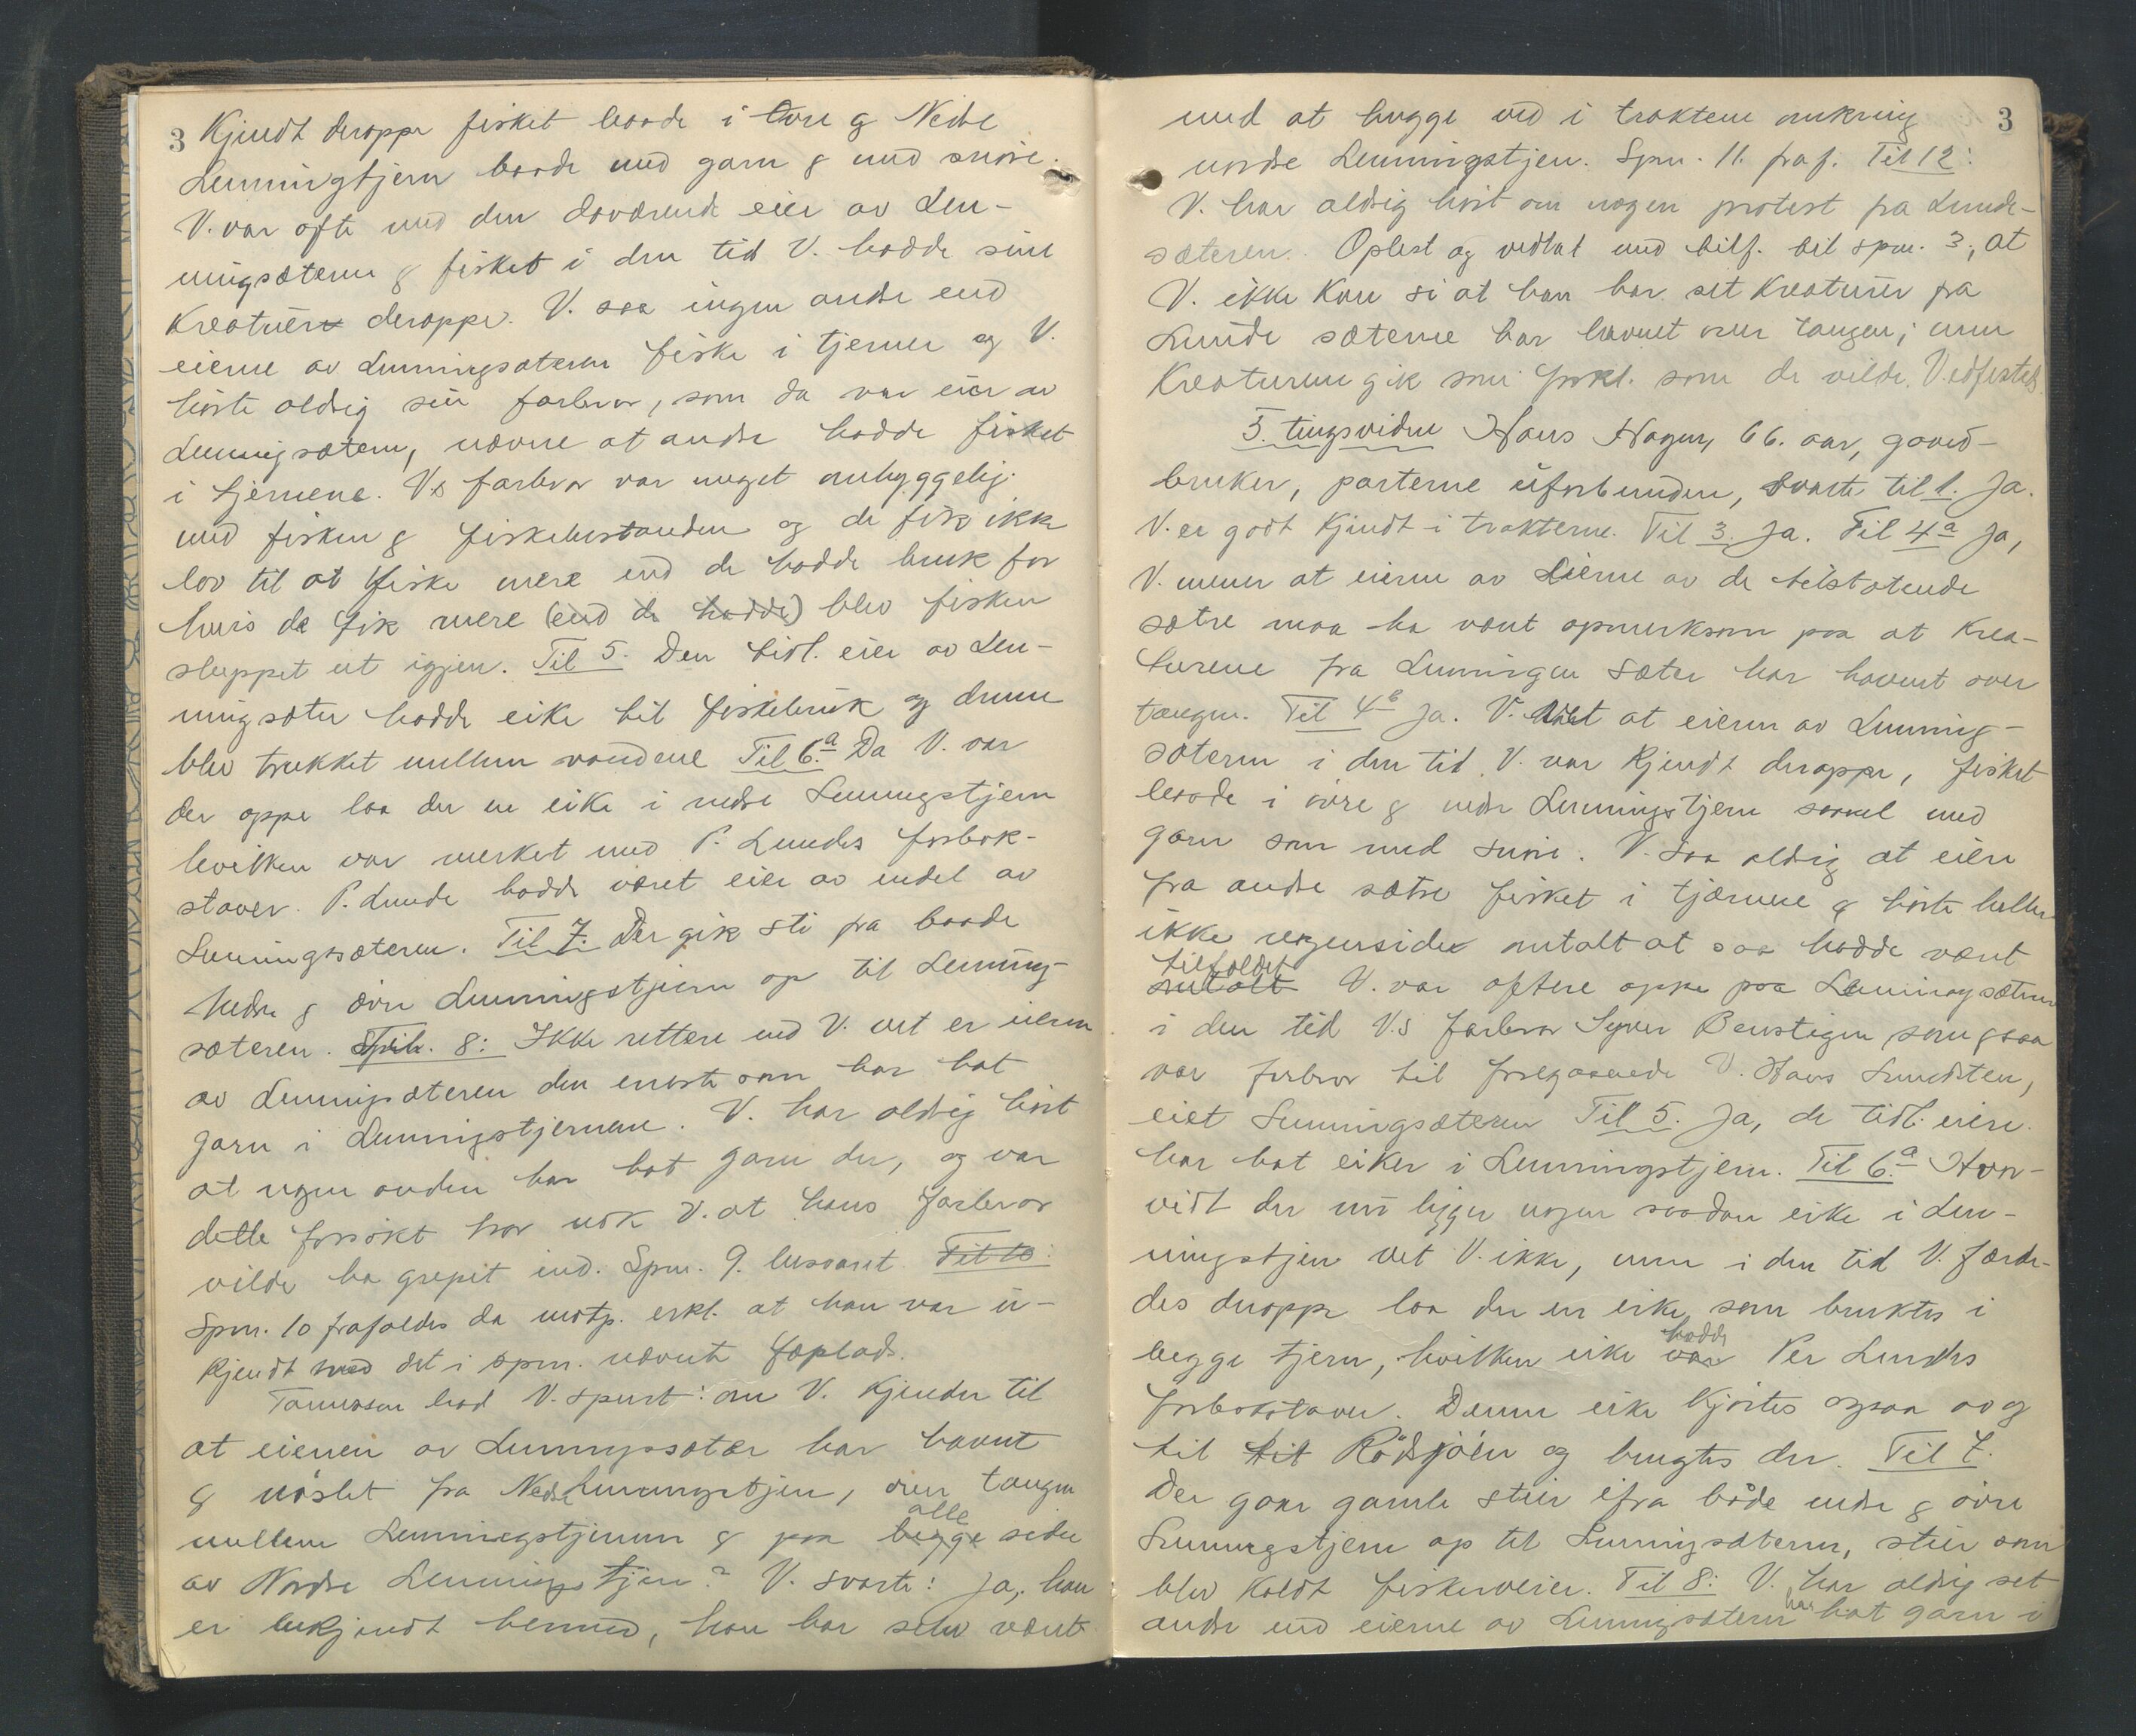 3 Kjendt deroppe fisket baade i øvre & Nedre
Lenningtjern baade med garn & med snøre.
V. var ofte med den daværende eier av Len-
ningsæteren & fisket i den tid V. hadde sine
Kreaturer deroppe. V. saa ingen andre end
eierne av Lenningsæteren fiske i tjernet og V.
hørte aldrig sin farbror, som da var eier av
Lenningsætern, nævne at andre hadde fisket
i tjernene. V.s farbror var meget omhyggelig
med fisken & fiskebestanden og de fik ikke
lov til at fiske mere end de hadde bruk for
hvis de fik mere (end de hadde) blev fisken
sluppet ut igjen. Til 5. Den tidl. eier av Len-
ningsæter hadde eike til fiskebruk og denne
blev trukket mellem vandene Til 6.a Da V. var
der oppe laa der en eike i nedre Lenningstjern
hvilken var merket med P. Lundes forbok-
staver. P. Lunde hadde været eier av endel av
Lenningsæteren. Til 7. Der gik sti fra baade
Nedre & øvre Lenningstjern op til Lenning-
sæteren. 8: Ikke rettere end V. vet er eieren
av Lenningsæteren den eneste som har hat
garn i Lenningstjernene. V. har aldrig hørt
at nogen anden har hat garn der, og var
dette forsøkt tror nok V. at hans farbror
vilde ha grepet ind. Spm. 9. besvaret. Til 10:
Spm. 10 frafaldes da motp. erkl. at han var u-
kjendt med det i spm. nævnte fæplads.
bad V. spurt: om V. kjender til
at eieren av Lenningssæter har havnet
& nøslet fra Nedre Lenningstjern, over tangen
mellem Lenningstjernene & paa begge alle sider
av Nordre Lennings tjern? V. svarte: Ja, han
er bekjendt hermed, han har selv været
3
med at hugge ved i traktene omkring
nordre Lenningstjen. Spm. 11. fraf. Til 12:
V. har aldrig hørt om nogen protest fra Lunde-
sæteren. Oplest og vedtat med tilf. til spm. 3, at
V. ikke kan si at han har set kreaturer fra
Lunde sæterne har havnet over tangen; men
Kreaturene gik som forkl. som de vilde. Vedfestet
5. tingsvidne Hans Hagen, 66. aar, gaard-
bruker, parterne uforbunden, svarte til 1. Ja.
V. er godt kjendt i trakterne. Til 3. Ja. Til 4a Ja,
V. mener at eierne av Eierne av de tilstøtende
sætre maa ha været opmerksom paa at Krea-
turene fra Lenningen sæter har havnet over
tangen. Til 4b Ja. V. vet at eieren av Lenning-
sæteren i den tid V. var kjendt deroppe, fisket
baade i øvre & nedre Lenningstjern saavel med
garn som med snøre. V. saa aldrig at eiere
fra andre sætre fisket i tjærnene & hørte heller
ikke nogensinde omtalt at saa hadde været
tilfældet
omtalt V. var oftere oppe paa Lenningsæteren
i den tid V.s farbror Syver Benstigen som ogsaa
var farbror til foregaaende V. Hans Lundsten,
eiet Lenningsæteren Til 5. Ja, de tidl. eiere
har hat eiker i Lenningstjern. Til 6.a Hvor-
vidt der nu ligger nogen saadan eike i Len-
ningstjen vet V. ikke, men i den tid V. færde-
des deroppe laa der en eike som bruktes i
begge tjern, hvilken eike var hadde Per Lundes
forbokstaver. Denne eike kjørtes ogsaa av og
til til Rödsjöen og brugtes der. Til 7.
Der gaar gamle stier ifra både nedre & øvre
Lenningstjern op til Lenningsæteren, stier som
blev kaldt fiskerveier. Til 8: V. har aldrig set
andre end eierne av Lenningsætern har hat garn i